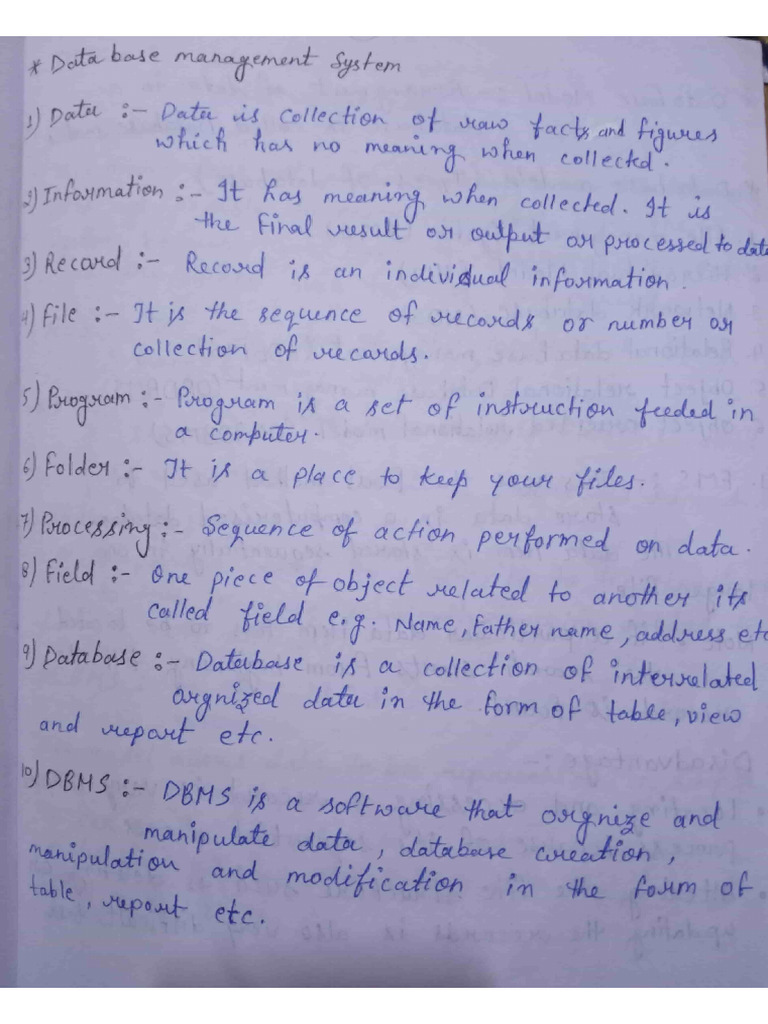 * Data base management System
1) Data :- Data is collection of raw facts and figures
which has no meaning when collected.
2) Information :- It has meaning when collected. It is
the final result or output or processed to data
3) Record :- Record is an individual information.
4) File :- It is the sequence of records or number or
collection of records.
5) Program :- Program is a set of instruction feeded in
a computer.
6) Folder :- It is a place to keep your files.
7) Processing :- Sequence of action performed on data.
8) Field :- One piece of object related to another its
called field e.g. Name, Father name, address, etc
9) Database :- Database is a collection of interrelated
orgnized data in the form of table, view
and report etc.
10) DBMS :- DBMS is a software that orgnize and
manipulate data, database creation,
manipulation and modification in the form of
table, report etc.